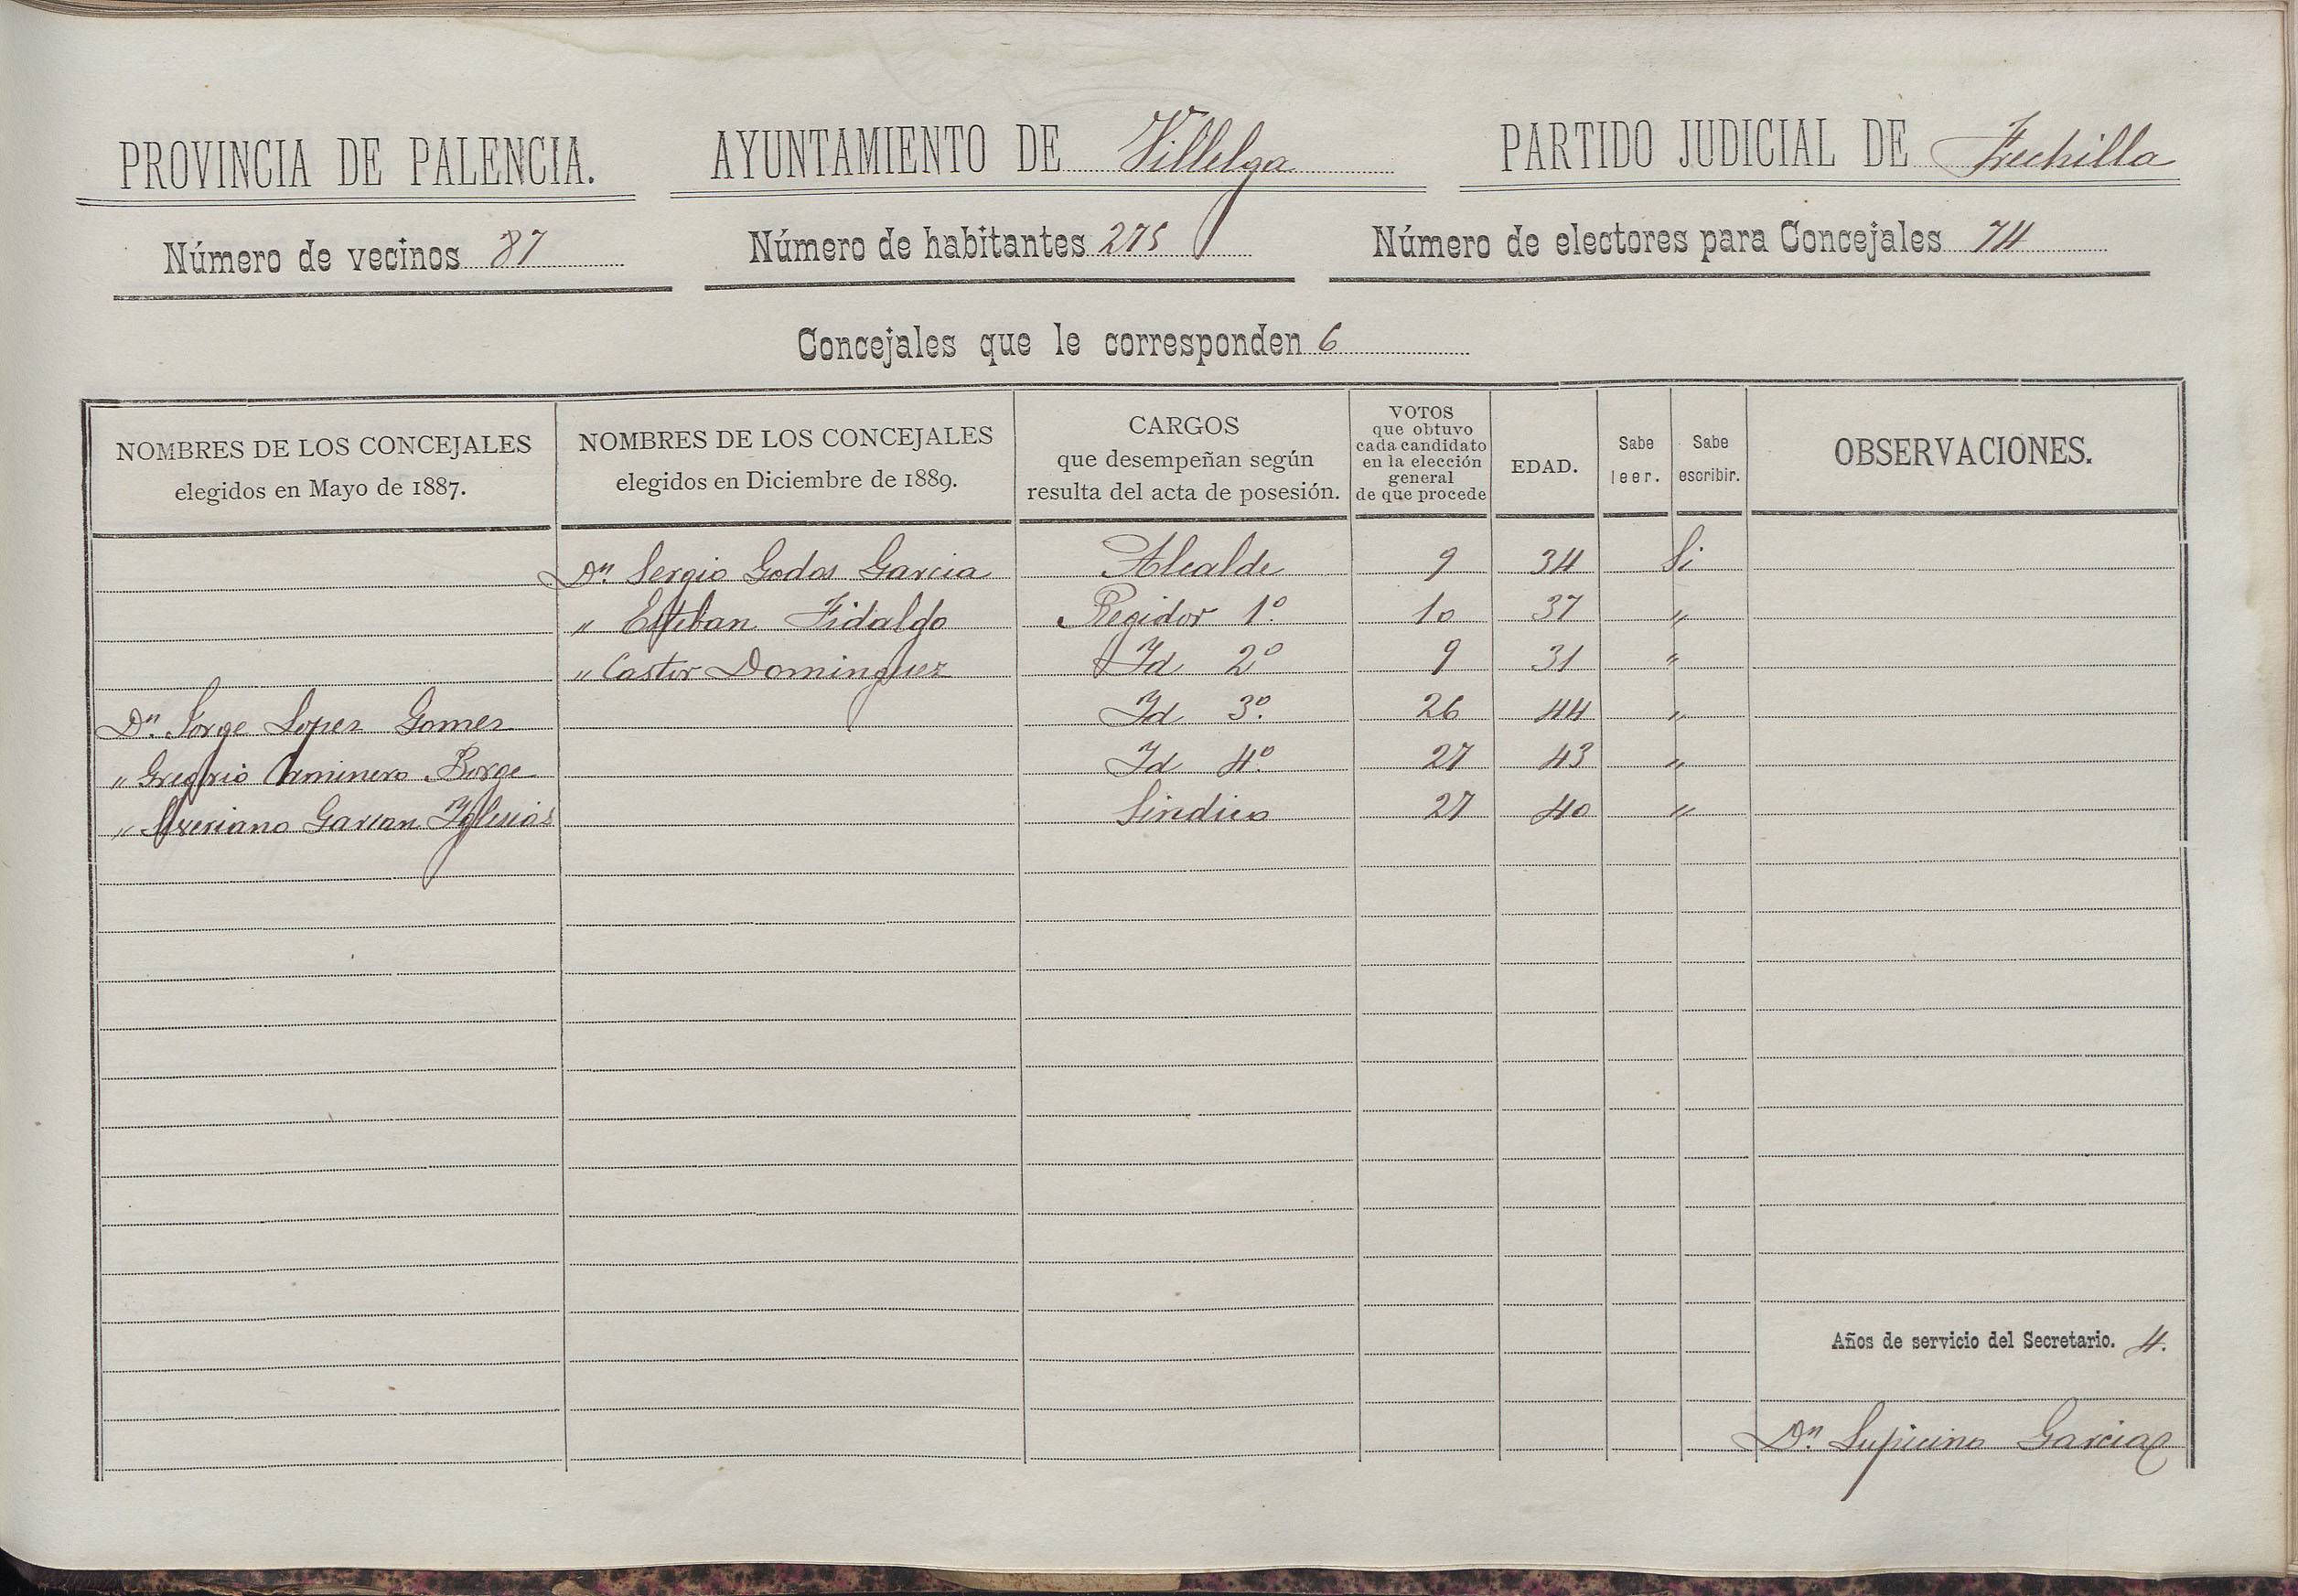 PROVINCIA DE PALENCIA. AYUNTAMIENTO DE Villelga PARTIDO JUDICIAL DE Frechilla
Número de vecinos 87 Número de habitantes 275 Número de electores para Concejales 74
Concejales que le corresponden 6
NOMBRES DE LOS CONCEJALES
elegidos en Mayo de 1887.
NOMBRES DE LOS CONCEJALES
elegidos en Diciembre de 1889.
CARGOS
que desempeñan según
resulta del acta de posesión.
VOTOS
que obtuvo
cada candidato
en la elección
general
de que procede
EDAD.
Sabe
leer.
Sabe
escribir.
OBSERVACIONES.
Dn. Sergio Godos Garcia Alcalde 9 34 Si
" Esteban Fidalgo Regidor 1º. 10 37 "
" Castor Dominguez Id 2º 9 31 "
Dn. Jorge Lopez Gomez Id 3º. 26 44 "
" Gregorio Caminero Borge Id 4º. 27 43 "
" Severiano Garcia Yglesias Sindico 27 40 "
Años de servicio del Secretario. 4.
Dn. Supicino Garcia